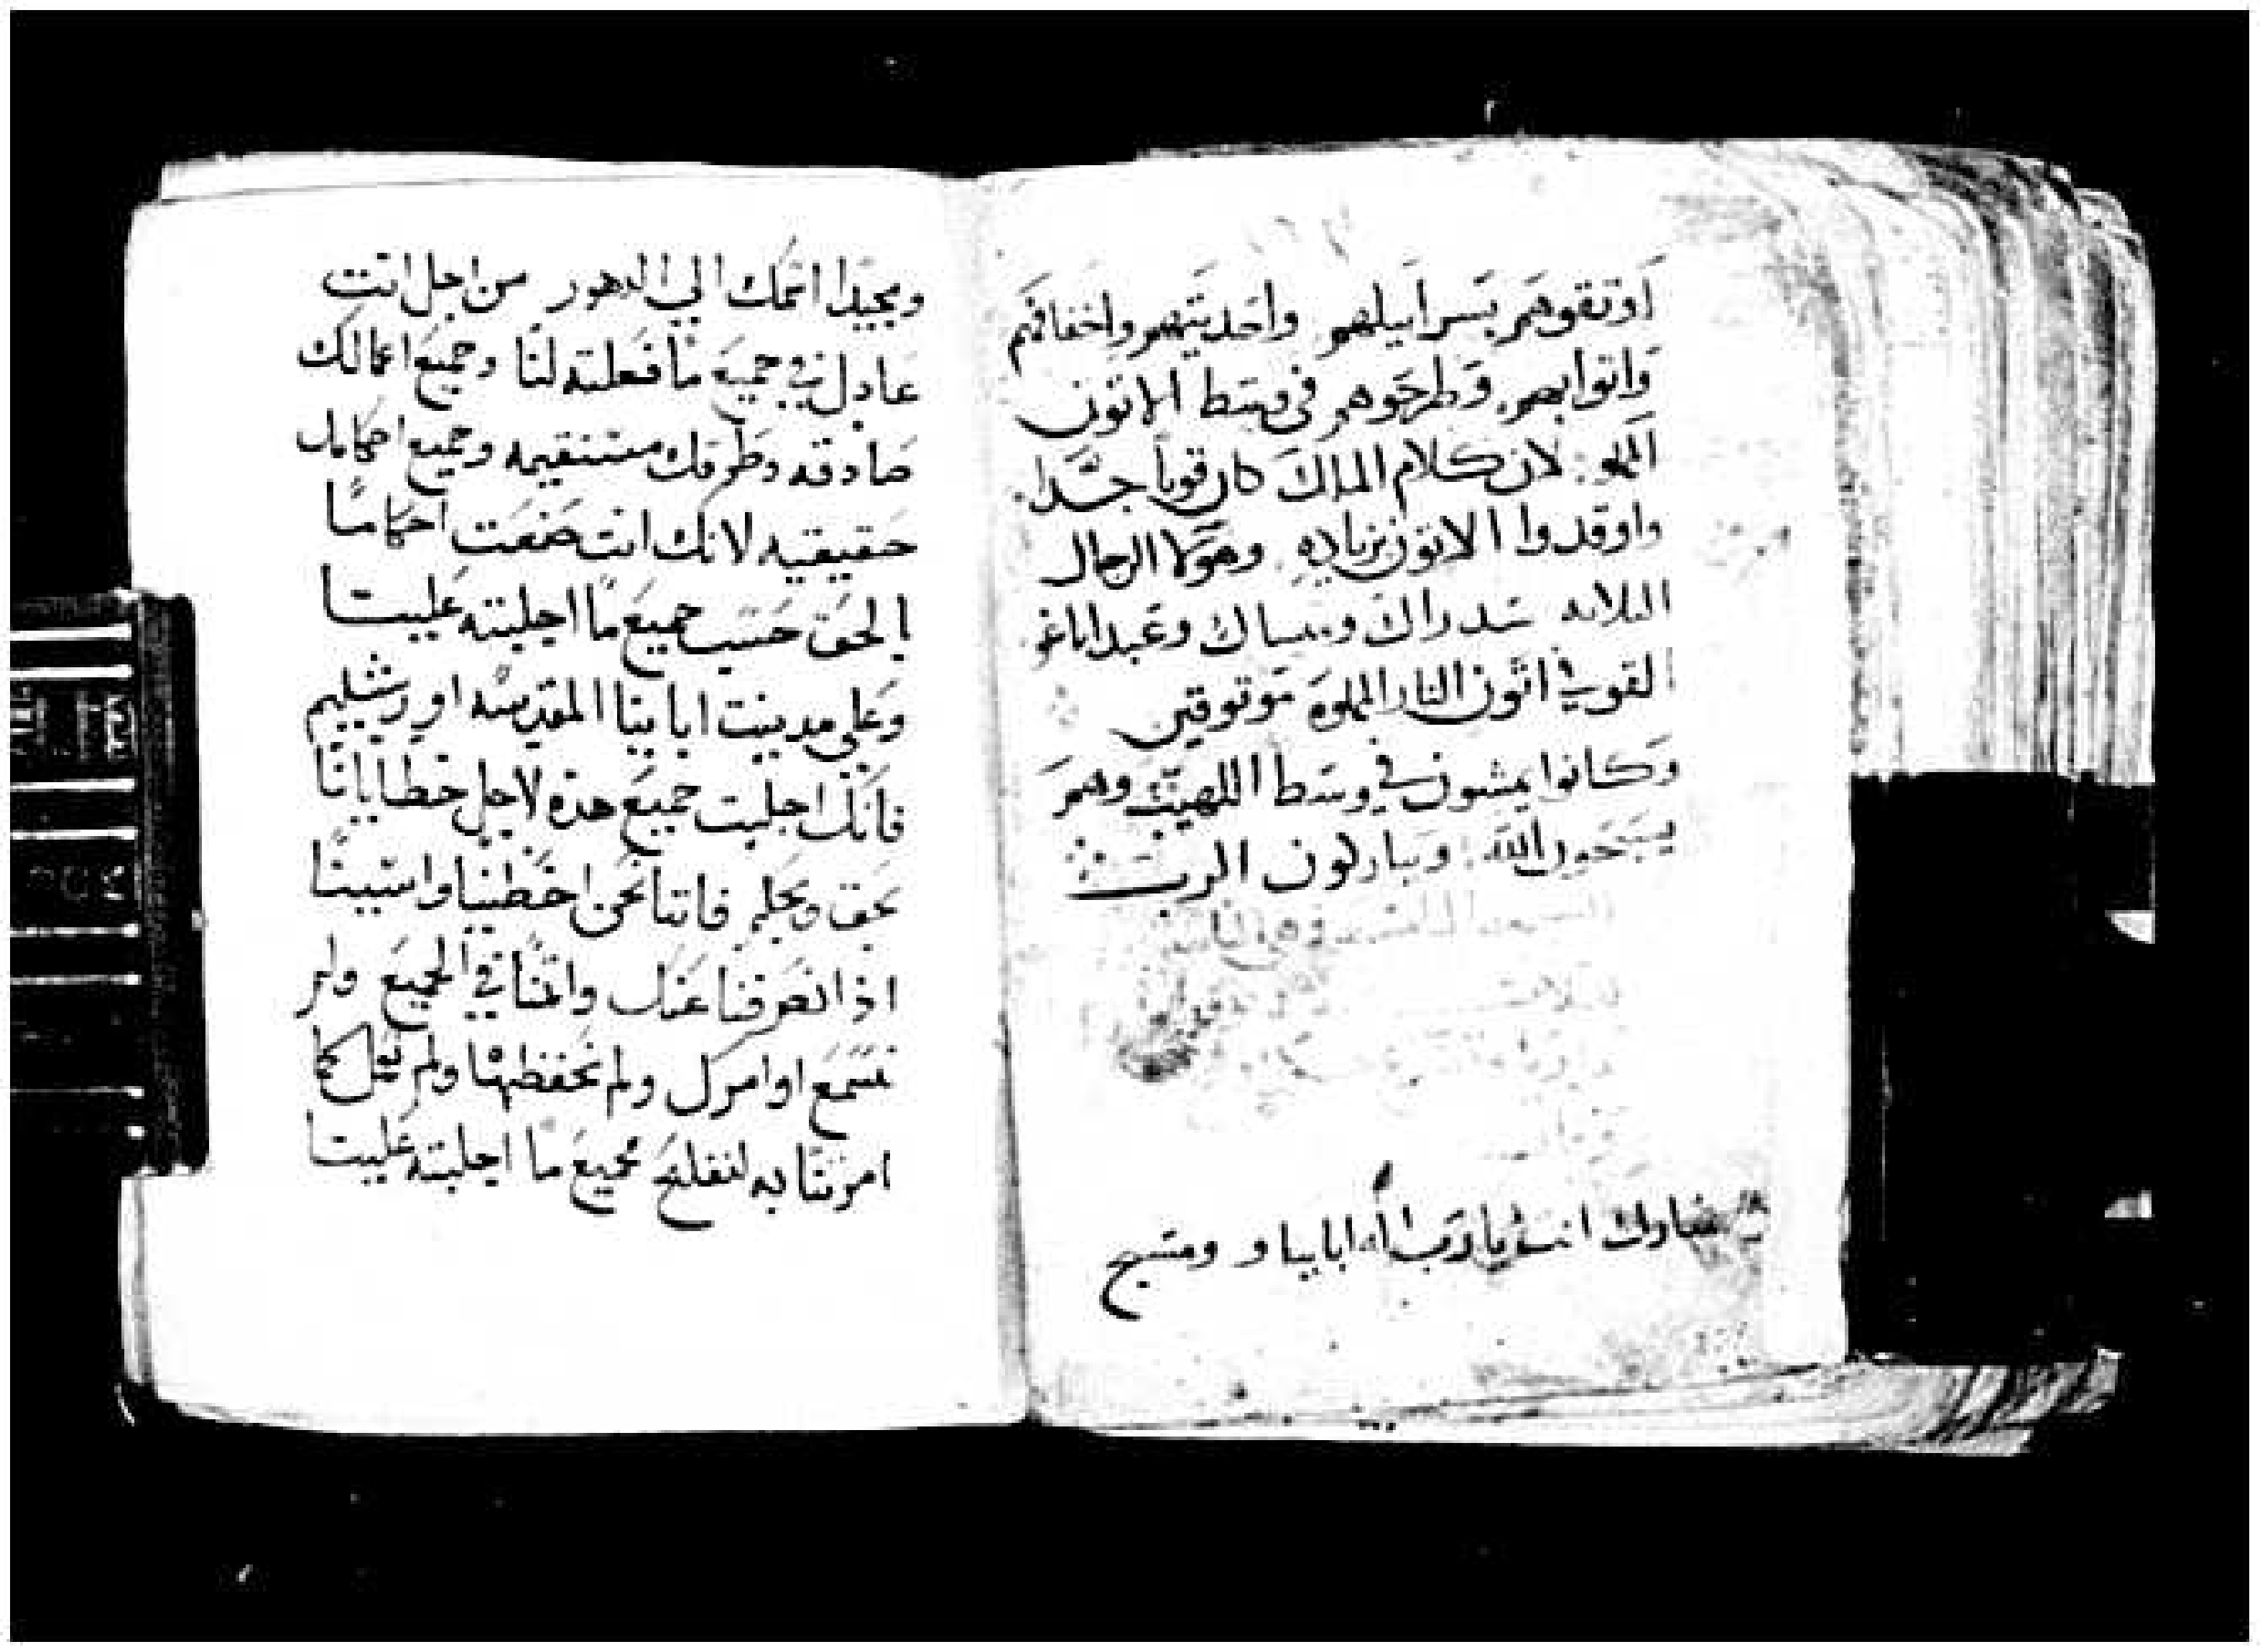 اوتقوهم بسرابيلهم واحديتهم واخفافهم
واتوابهم وطرحوهم فى وسط الاتون
لان كلام الملك كان قوياً جداً
واوقدوا الاتون بزياده وهولا الرجال
التلاته سدراك وميساك وعبداناغو
القوا في اتون النار المملوه موتوقين
وكانوا يمشون في وسط اللهيب وهم
يسبحون الله وباركون الرب
تبارك انت يارب اله ابايناو ومسبح
ومجيدا اسمك الي الدهور من اجل انت
عادل في جميع ما فعلته لنا وجميع اعمالك
صادقه وطرقك مستقيمه وجميع احكامك
حقيقيه لانك انت صنعت احكاما
بالحق حسب جميع ما اجلبته علينا
وعلي مدينت اباينا المقدسه اورشليم
فانك اجلبت جميع هذه لاجل خطايانا
بحق وبحكم فاننا نحن اخطينا واسينا
اذ انصرفنا عنك واتمنا في الجميع ولم
نسمع اوامرك ولم نحفظها ولم نعمل كما
امرتنا به لنفلح فجميع ما اجلبته علينا